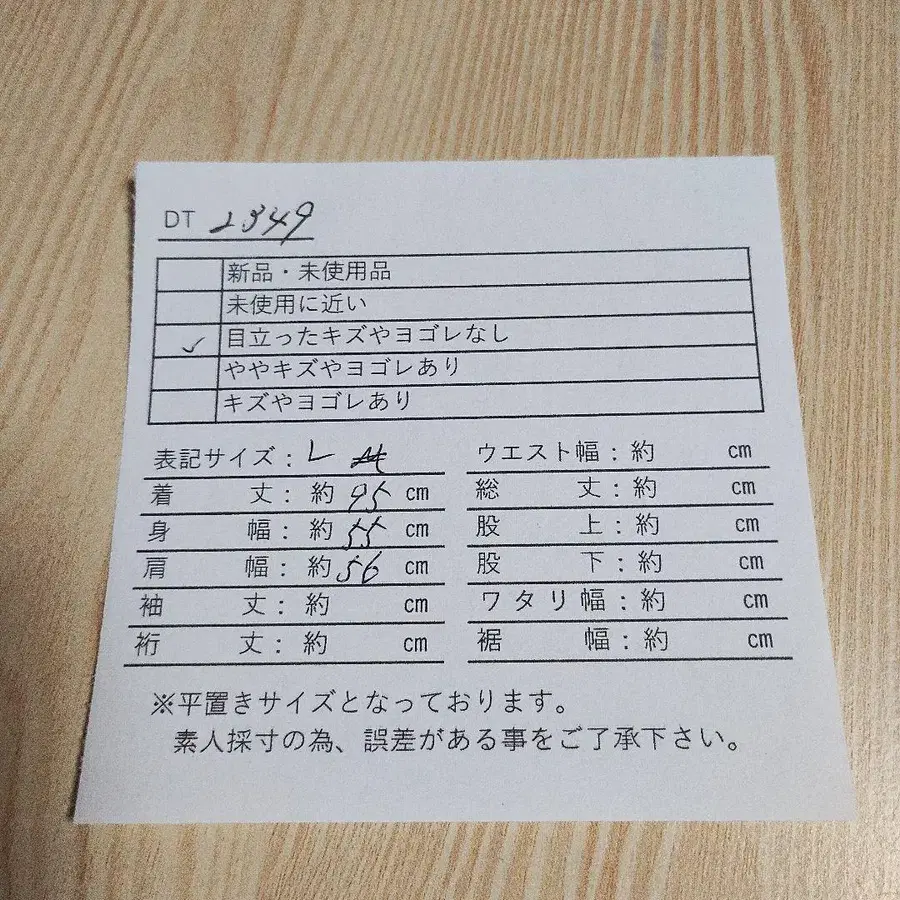 DT 2349
新品・未使用品
未使用に近い
✓ 目立ったキズやヨゴレなし
ややキズやヨゴレあり
キズやヨゴレあり
表記サイズ：L
着丈：約95cm
身幅：約55cm
肩幅：約56cm
袖丈：約 cm
裄丈：約 cm
ウエスト幅：約 cm
総丈：約 cm
股上：約 cm
股下：約 cm
ワタリ幅：約 cm
裾幅：約 cm
※平置きサイズとなっております。
素人採寸の為、誤差がある事をご了承下さい。